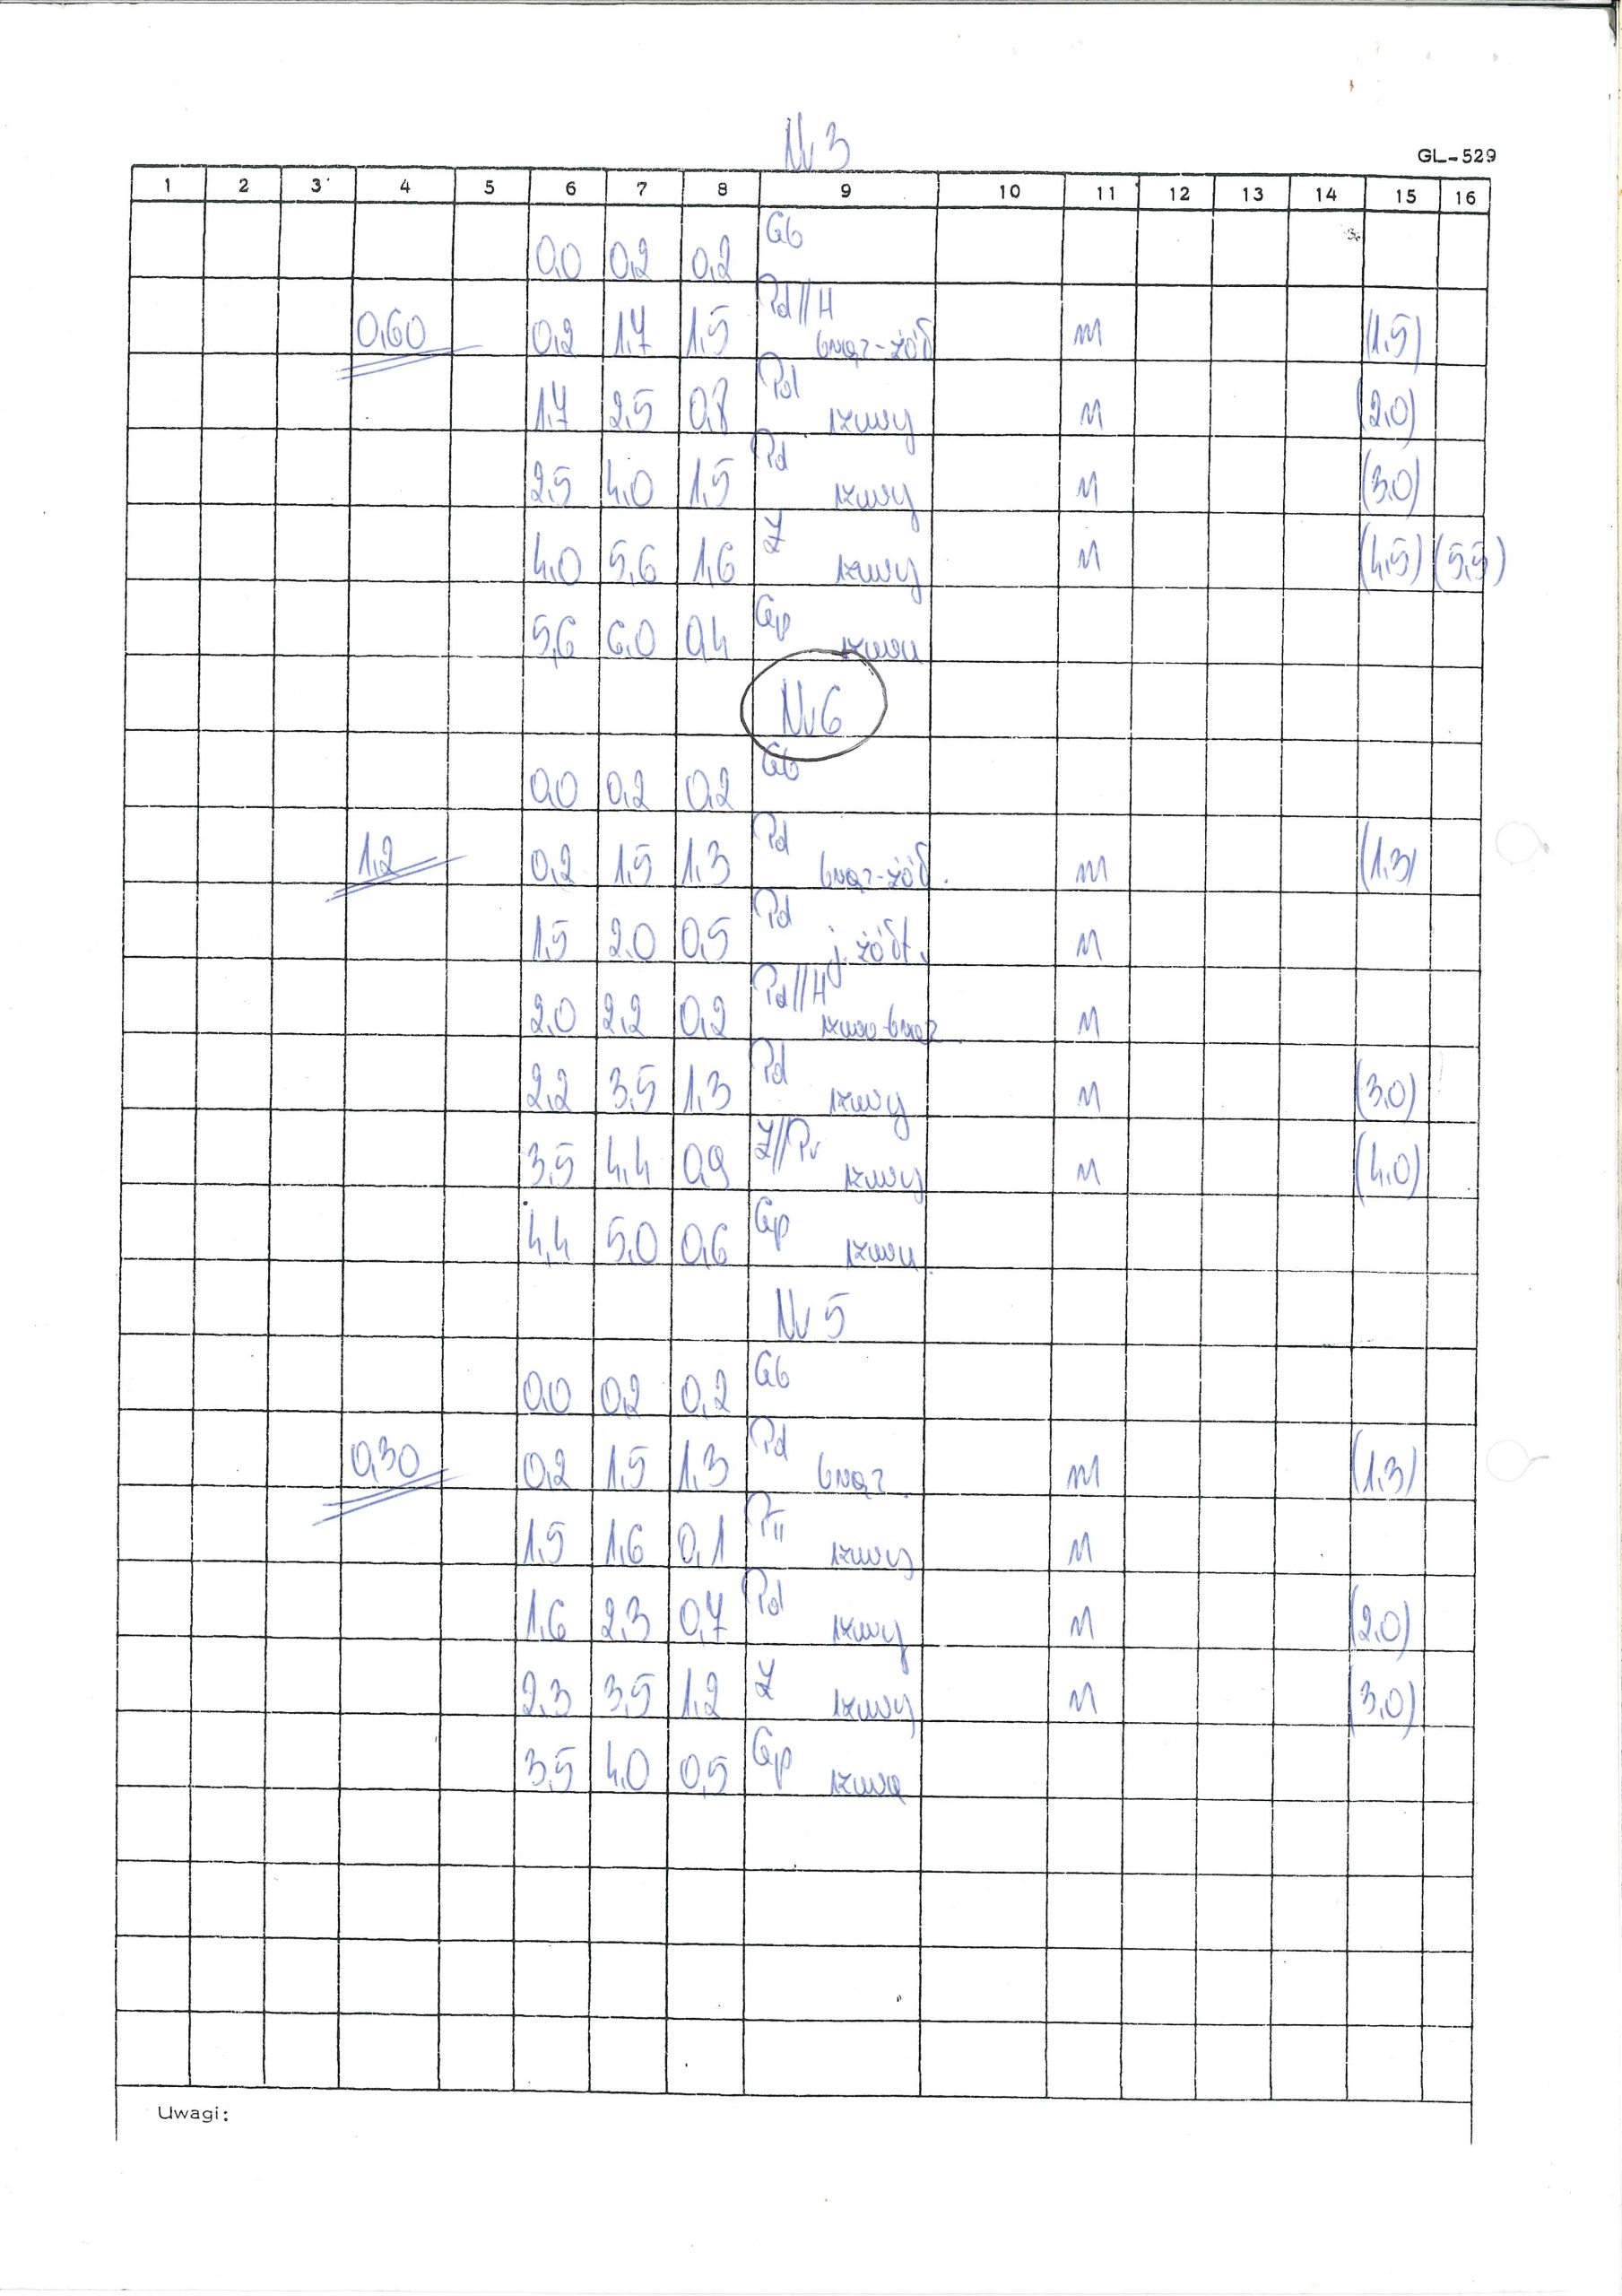 Nr 3
GL-529
1 2 3 4 5 6 7 8 9 10 11 12 13 14 15 16
0,0 0,2 0,2 Gb
0,60 0,2 1,7 1,5 Pd//H brąz-żół m (1,5)
1,7 2,5 0,8 Pd szary n (2,0)
2,5 4,0 1,5 Pd szary n (3,0)
4,0 5,6 1,6 Ż szary n (4,5) (5,5)
5,6 6,0 0,4 Gp szara
Nr 6
0,0 0,2 0,2 Gb
1,2 0,2 1,5 1,3 Pd brąz-żół. m (1,3)
1,5 2,0 0,5 Pd j. żółt. n
2,0 2,2 0,2 Pd//H szaro-brąz n
2,2 3,5 1,3 Pd szary n (3,0)
3,5 4,4 0,9 Ż//Pr szary n (4,0)
4,4 5,0 0,6 Gp szara
Nr 5
0,0 0,2 0,2 Gb
0,30 0,2 1,5 1,3 Pd brąz. m (1,3)
1,5 1,6 0,1 szary n
1,6 2,3 0,7 Pd szary n (2,0)
2,3 3,5 1,2 Ż szary n (3,0)
3,5 4,0 0,5 Gp szara
Uwagi: